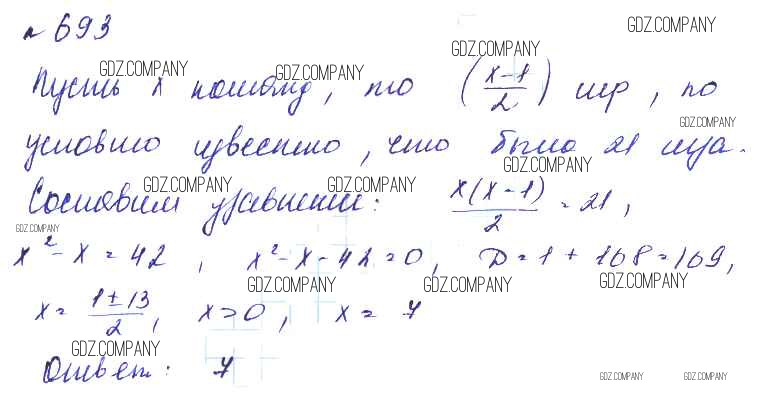 № 693
GDZ.COMPANY
GDZ.COMPANY
GDZ.COMPANY GDZ.COMPANY
Пусть x команд, то (x-1/2) игр, по
GDZ.COMPANY
условию известно, что было 21 игра.
GDZ.COMPANY
GDZ.COMPANY GDZ.COMPANY
Составим уравнение: x(x-1)/2 = 21,
GDZ.COMPANY
x² - x = 42, x² - x - 42 = 0, D = 1 + 168 = 169,
GDZ.COMPANY GDZ.COMPANY GDZ.COMPANY
x = 1 ± 13/2, x > 0, x = 7
GDZ.COMPANY
Ответ: 7
GDZ.COMPANY GDZ.COMPANY